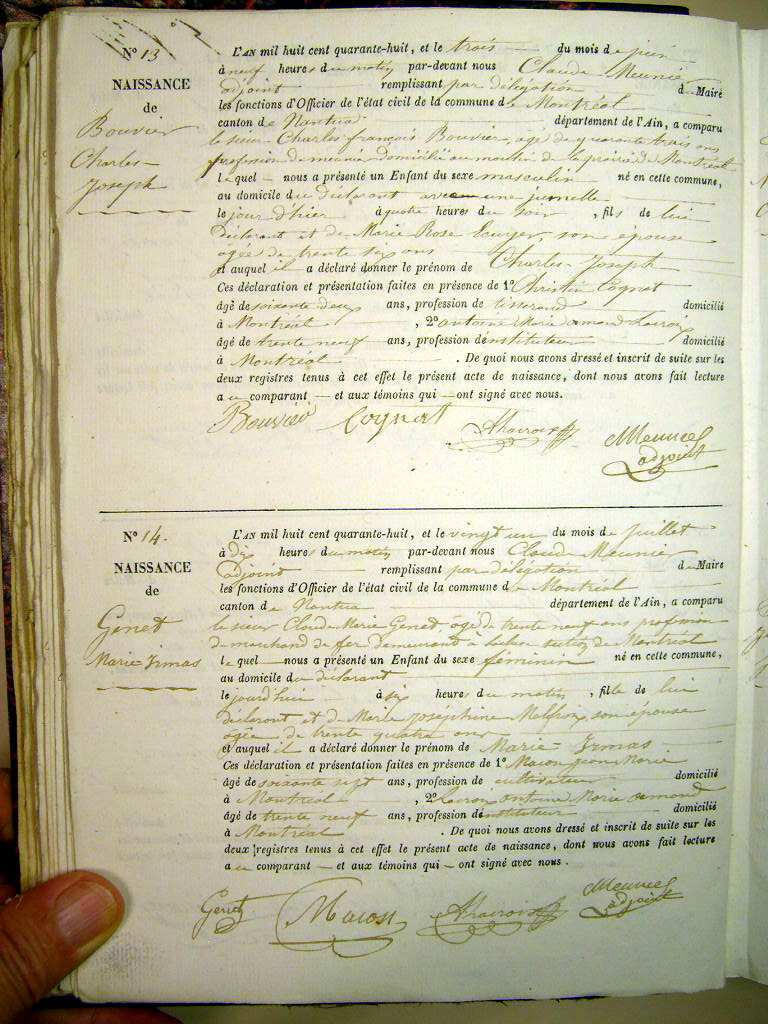 N° 13
NAISSANCE
de
Bouvier
Charles
Joseph
L'AN mil huit cent quarante-huit, et le trois du mois de juin
à neuf heures du matin par-devant nous Claude Meunier
adjoint remplissant par délégation de Maire
les fonctions d'Officier de l'état civil de la commune de Montréal
canton de Nantua département de l'Ain, a comparu
le sieur Charles françois Bouvier, âgé de quarante trois ans
profession de meunier domicilié au moulin de la prairie de Montréal
lequel nous a présenté un Enfant du sexe masculin né en cette commune,
au domicile du déclarant avec une jumelle
le jour d'hier à quatre heures du soir, fils de lui
déclarant et de Marie Rose Ecuyer, son épouse
âgée de trente six ans
et auquel il a déclaré donner le prénom de Charles Joseph
Ces déclaration et présentation faites en présence de 1° Christin Cognat
âgé de soixante deux ans, profession de tisserand domicilié
à Montréal, 2° antoine Marie amand
âgé de trente neuf ans, profession d'instituteur domicilié
à Montréal. De quoi nous avons dressé et inscrit de suite sur les
deux registres tenus à cet effet le présent acte de naissance, dont nous avons fait lecture
au comparant et aux témoins qui ont signé avec nous.
Bouvier Cognat Meunier
adjoint
N° 14.
NAISSANCE
de
Genet
Marie Irmas
L'AN mil huit cent quarante-huit, et le vingt un du mois de juillet
à dix heures du matin par-devant nous Claude Meunier
adjoint remplissant par délégation de Maire
les fonctions d'Officier de l'état civil de la commune de Montréal
canton de Nantua département de l'Ain, a comparu
le sieur Claude Marie Genet, âgé de trente neuf ans profession
de marchand de fer demeurant à section de Montréal
lequel nous a présenté un Enfant du sexe féminin né en cette commune,
au domicile du déclarant
le jourd'hui à six heures du matin, fille de lui
déclarant et de Marie Joséphine son épouse
âgée de trente quatre ans
et auquel il a déclaré donner le prénom de Marie Irmas
Ces déclaration et présentation faites en présence de 1° Macon jean Marie
âgé de soixante sept ans, profession de cultivateur domicilié
à Montréal, 2° antoine Marie amand
âgé de trente neuf ans, profession d'instituteur domicilié
à Montréal. De quoi nous avons dressé et inscrit de suite sur les
deux registres tenus à cet effet le présent acte de naissance, dont nous avons fait lecture
au comparant et aux témoins qui ont signé avec nous.
Genet Macon Meunier
adjoint